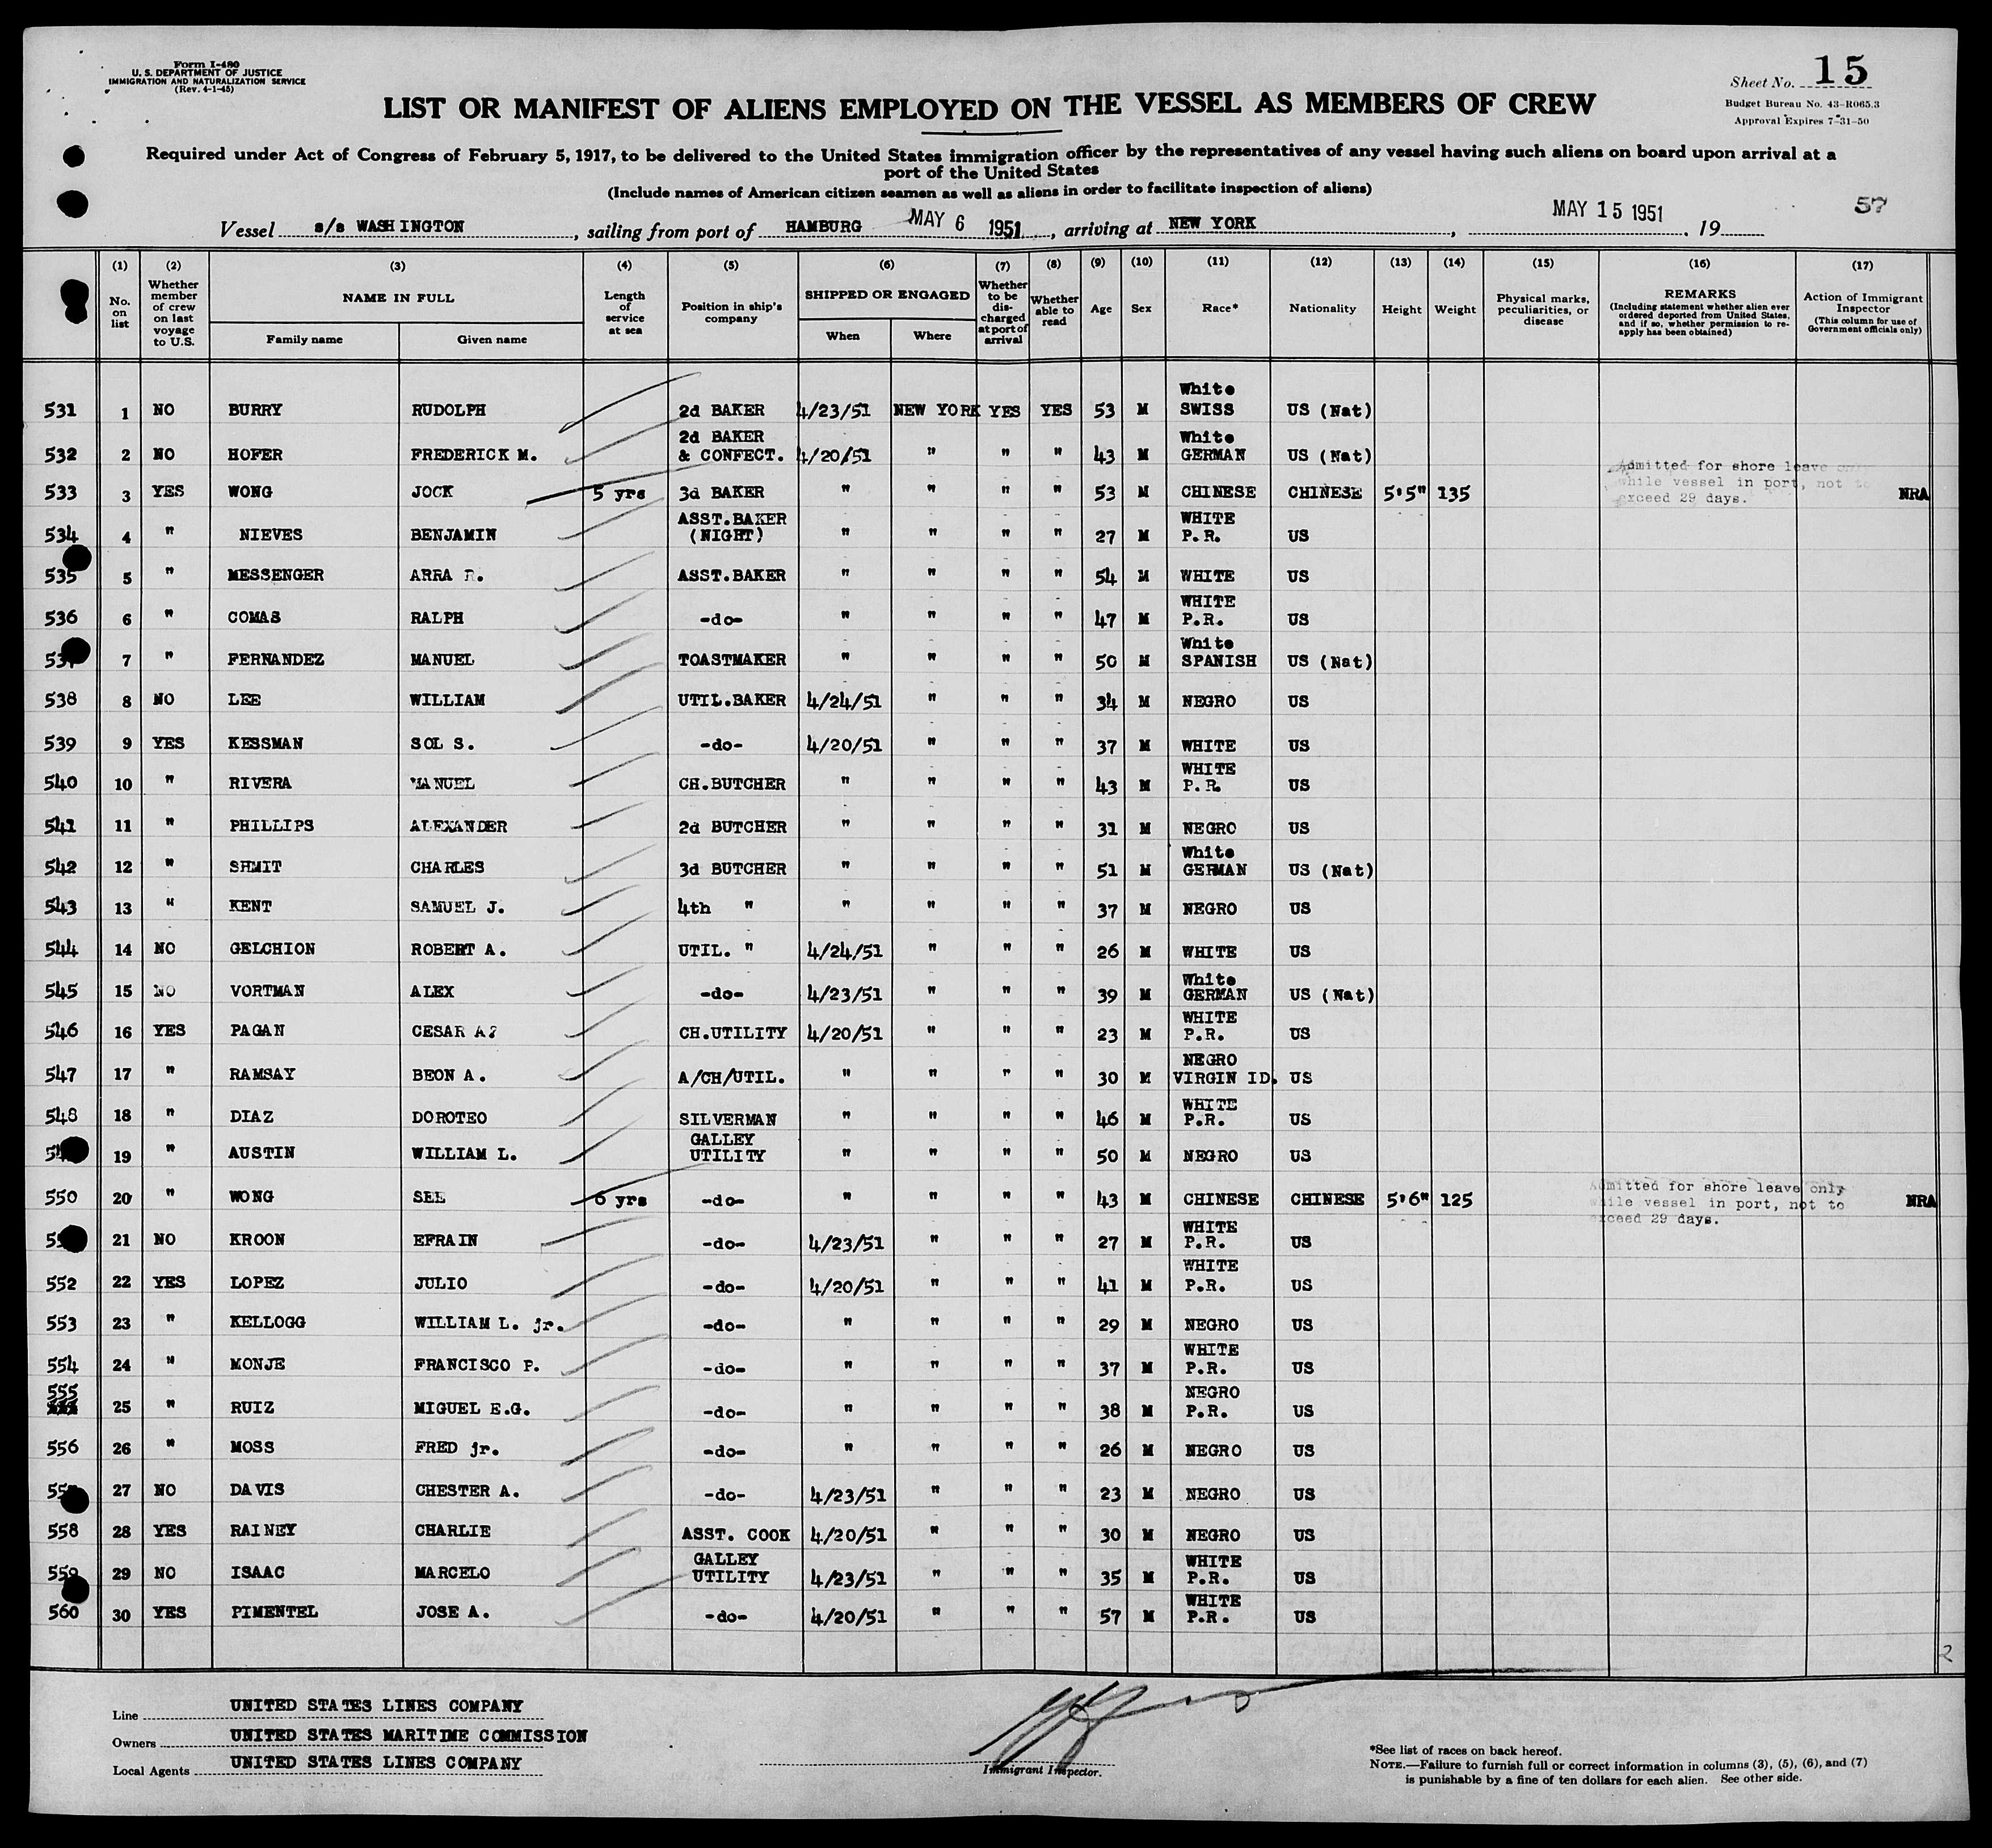 Form I-480
U. S. DEPARTMENT OF JUSTICE
IMMIGRATION AND NATURALIZATION SERVICE
(Rev. 4-1-45)
Sheet No. 15
Budget Bureau No. 43-R065.3
Approval Expires 7-31-50
LIST OR MANIFEST OF ALIENS EMPLOYED ON THE VESSEL AS MEMBERS OF CREW
Required under Act of Congress of February 5, 1917, to be delivered to the United States immigration officer by the representatives of any vessel having such aliens on board upon arrival at a
port of the United States
(Include names of American citizen seamen as well as aliens in order to facilitate inspection of aliens)
57
Vessel s/s WASHINGTON, sailing from port of HAMBURG MAY 6 1951, arriving at NEW YORK, MAY 15 1951, 19
(1) No. on list
(2) Whether member of crew on last voyage to U.S.
(3) NAME IN FULL Family name Given name
(4) Length of service at sea
(5) Position in ship's company
(6) SHIPPED OR ENGAGED When Where
(7) Whether to be discharged at port of arrival
(8) Whether able to read
(9) Age
(10) Sex
(11) Race*
(12) Nationality
(13) Height
(14) Weight
(15) Physical marks, peculiarities, or disease
(16) REMARKS (Including statement whether alien ever ordered deported from United States, and if so, whether permission to reapply has been obtained)
(17) Action of Immigrant Inspector (This column for use of Government officials only)
531 1 NO BURRY RUDOLPH 2d BAKER 4/23/51 NEW YORK YES YES 53 M White SWISS US (Nat)
532 2 NO HOFER FREDERICK M. 2d BAKER & CONFECT. 4/20/51 " " " 43 M White GERMAN US (Nat)
533 3 YES WONG JOCK 5 yrs 3d BAKER " " " " 53 M CHINESE CHINESE 5'5" 135 Admitted for shore leave only while vessel in port, not to exceed 29 days. NRA
534 4 " NIEVES BENJAMIN ASST.BAKER (NIGHT) " " " " 27 M WHITE P.R. US
535 5 " MESSENGER ARRA R. ASST.BAKER " " " " 54 M WHITE US
536 6 " COMAS RALPH -do- " " " " 47 M WHITE P.R. US
537 7 " FERNANDEZ MANUEL TOASTMAKER " " " " 50 M White SPANISH US (Nat)
538 8 NO LEE WILLIAM UTIL.BAKER 4/24/51 " " " 34 M NEGRO US
539 9 YES KESSMAN SOL S. -do- 4/20/51 " " " 37 M WHITE US
540 10 " RIVERA MANUEL CH.BUTCHER " " " " 43 M WHITE P.R. US
541 11 " PHILLIPS ALEXANDER 2d BUTCHER " " " " 31 M NEGRO US
542 12 " SHMIT CHARLES 3d BUTCHER " " " " 51 M White GERMAN US (Nat)
543 13 " KENT SAMUEL J. 4th " " " " " 37 M NEGRO US
544 14 NO GELCHION ROBERT A. UTIL. " 4/24/51 " " " 26 M WHITE US
545 15 NO VORTMAN ALEX -do- 4/23/51 " " " 39 M White GERMAN US (Nat)
546 16 YES PAGAN CESAR A? CH.UTILITY 4/20/51 " " " 23 M WHITE P.R. US
547 17 " RAMSAY BEON A. A/CH/UTIL. " " " " 30 M NEGRO VIRGIN ID. US
548 18 " DIAZ DOROTEO SILVERMAN " " " " 46 M WHITE P.R. US
19 " AUSTIN WILLIAM L. GALLEY UTILITY " " " " 50 M NEGRO US
550 20 " WONG SEE 6 yrs -do- " " " " 43 M CHINESE CHINESE 5'6" 125 Admitted for shore leave only while vessel in port, not to exceed 29 days. NRA
21 NO KROON EFRAIN -do- 4/23/51 " " " 27 M WHITE P.R. US
552 22 YES LOPEZ JULIO -do- 4/20/51 " " " 41 M WHITE P.R. US
553 23 " KELLOGG WILLIAM L. jr. -do- " " " " 29 M NEGRO US
554 24 " MONJE FRANCISCO P. -do- " " " " 37 M WHITE P.R. US
555 25 " RUIZ MIGUEL E.G. -do- " " " " 38 M NEGRO P.R. US
556 26 " MOSS FRED jr. -do- " " " " 26 M NEGRO US
27 NO DAVIS CHESTER A. -do- 4/23/51 " " " 23 M NEGRO US
558 28 YES RAINEY CHARLIE ASST. COOK 4/20/51 " " " 30 M NEGRO US
559 29 NO ISAAC MARCELO GALLEY UTILITY 4/23/51 " " " 35 M WHITE P.R. US
560 30 YES PIMENTEL JOSE A. -do- 4/20/51 " " " 57 M WHITE P.R. US
2
Line UNITED STATES LINES COMPANY
Owners UNITED STATES MARITIME COMMISSION
Local Agents UNITED STATES LINES COMPANY
Immigrant Inspector.
*See list of races on back hereof.
NOTE.—Failure to furnish full or correct information in columns (3), (5), (6), and (7)
is punishable by a fine of ten dollars for each alien. See other side.